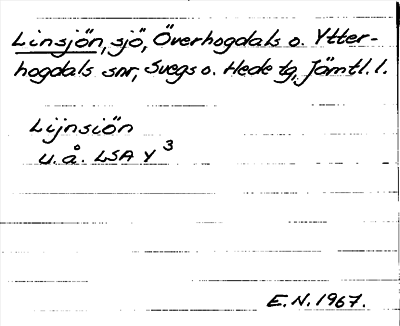 Linsjön, sjö, Överhogdals o. Ytter-
hogdals snr, Svegs o. Hede tg, Jämtl. l.
Lijnsiön
u.å. LSA Y³
E.N. 1967.